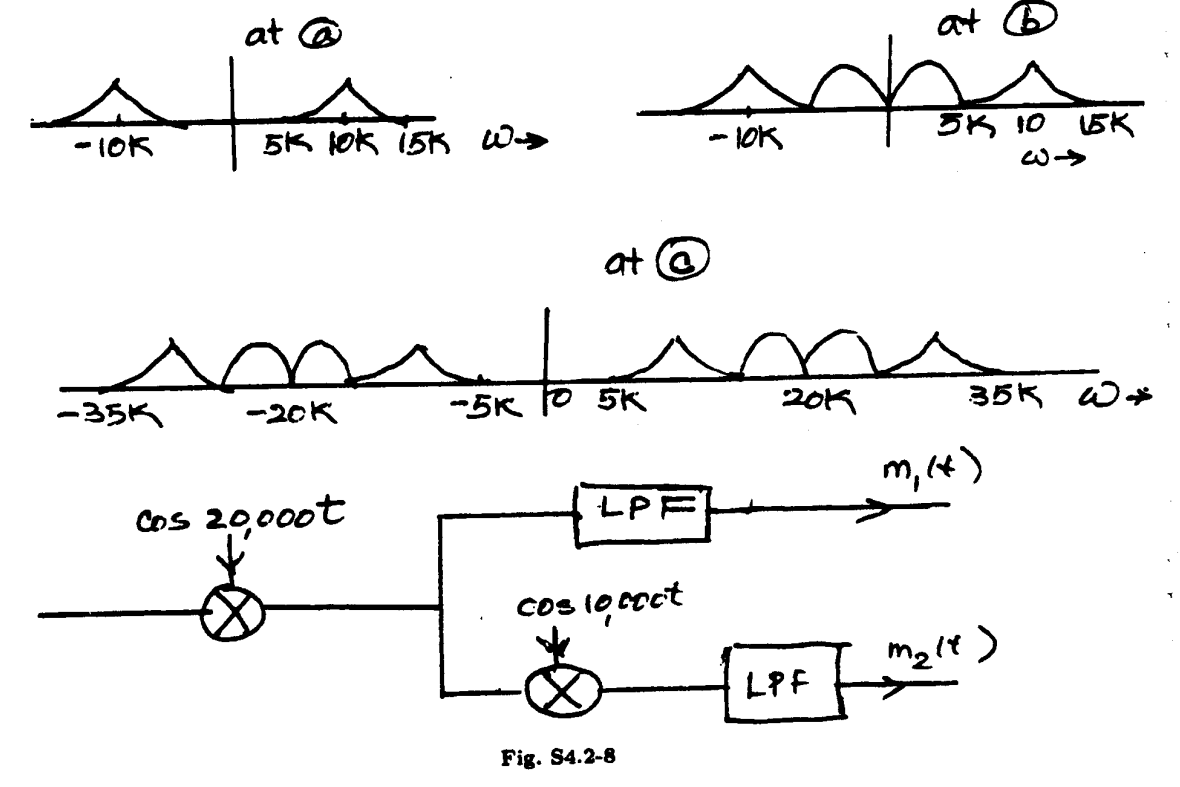 at ⓐ
-10K 5K 10K 15K ω→
at ⓑ
-10K 5K 10 15K
ω→
at ⓒ
-35K -20K -5K 0 5K 20K 35K ω→
cos 20,000t
LPF
m₁(t)
cos 10,000t
LPF
m₂(t)
Fig. S4.2-8